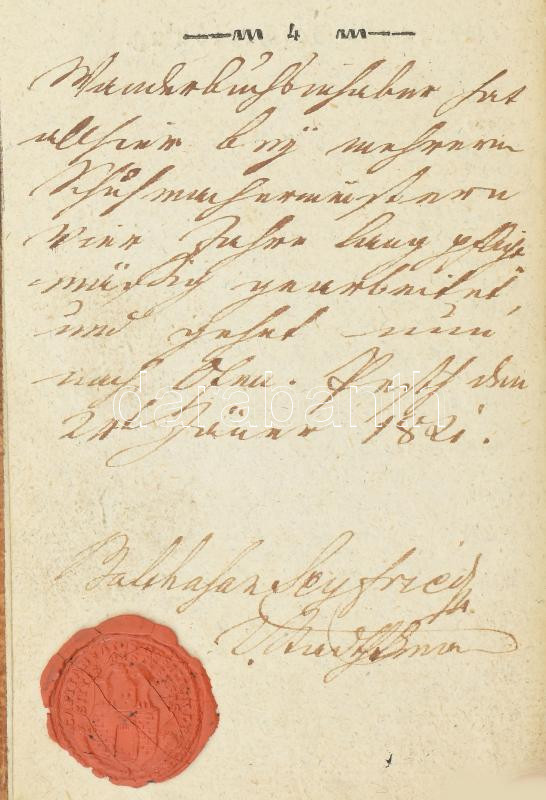 4
Wanderbuchsinhaber hat
allhier bey mehrern
Schuhmachermeistern
vier Jahre lang pflicht
mäßig gearbeitet,
und gehet nun
nach Ofen. Pesth den
24t Jäner 1821.
Balthasar Seyfried
darabanth